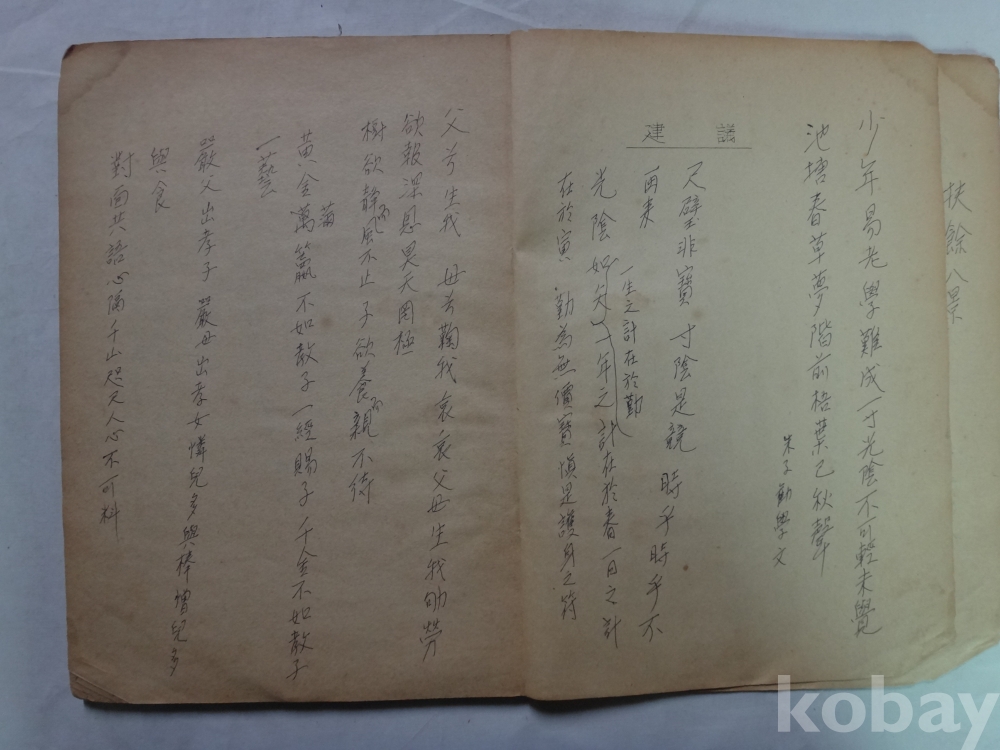 扶餘八景
少年易老學難成一寸光陰不可輕未覺
池塘春草夢階前梧葉已秋聲
朱子勸學文
建 議
尺璧非寶 寸陰是競 時乎時乎不
再來
一生之計在於勤
光陰如矢 一年之計在於春 一日之計
在於寅 勤爲無價寶愼是護身之符
父兮生我 母兮鞠我 哀哀父母生我劬勞
欲報深恩昊天罔極
樹欲静而風不止 子欲養而親不待
滿
黄金萬籯不如敎子一經賜子千金不如敎子
一藝
嚴父出孝子 嚴母出孝女憐兒多與棒憎兒多
與食
對面共語心隔千山咫尺人心不可料
kobay